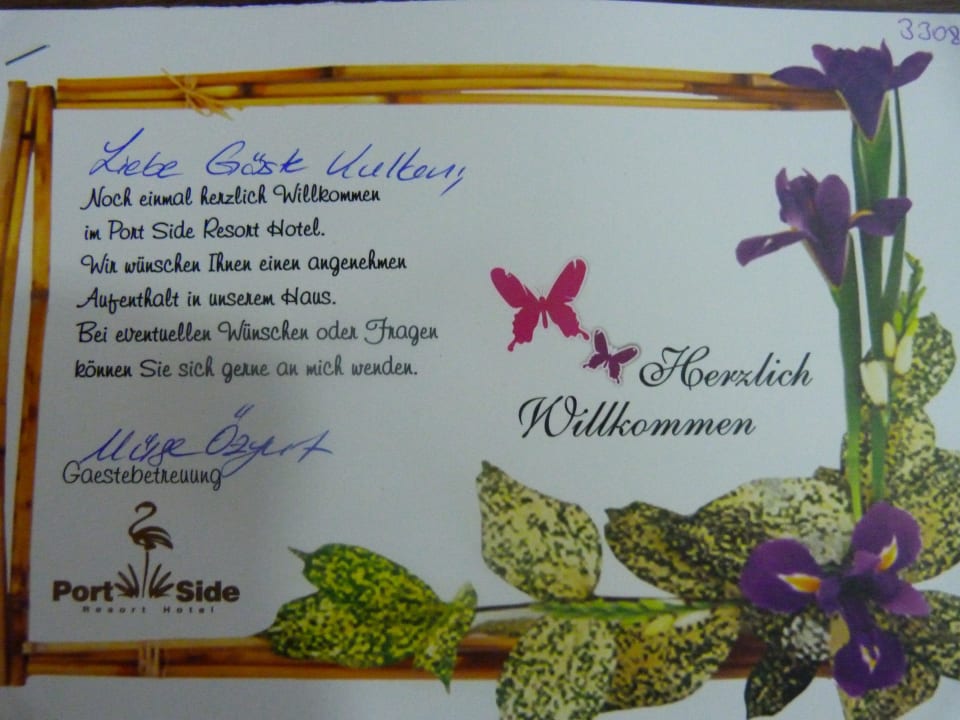 3308
Liebe Gäste
Noch einmal herzlich Willkommen
im Port Side Resort Hotel.
Wir wünschen Ihnen einen angenehmen
Aufenthalt in unserem Haus.
Bei eventuellen Wünschen oder Fragen
können Sie sich gerne an mich wenden.
Gaestebetreuung
Port Side
Resort Hotel
Herzlich
Willkommen